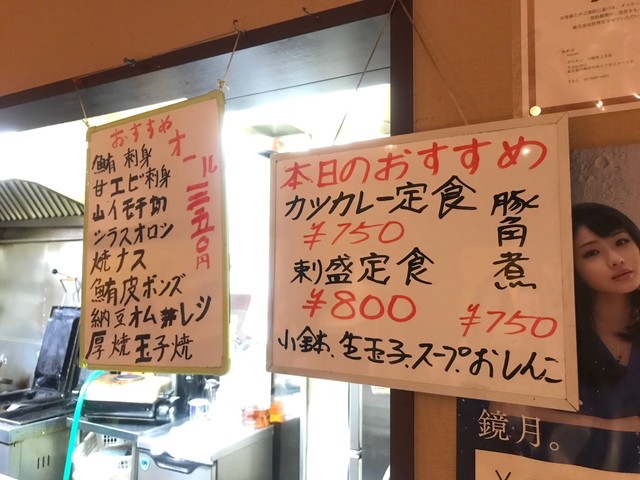 おすすめ
オール三五〇円
鮪刺身
甘エビ刺身
山イモ千切
シラスオロシ
焼ナス
鮪皮ポンズ
納豆オムレツ
厚焼玉子焼
本日のおすすめ
カツカレー定食
¥750
刺盛定食
¥800
豚角煮
¥750
小鉢、生玉子、スープ、おしんこ
鏡月。